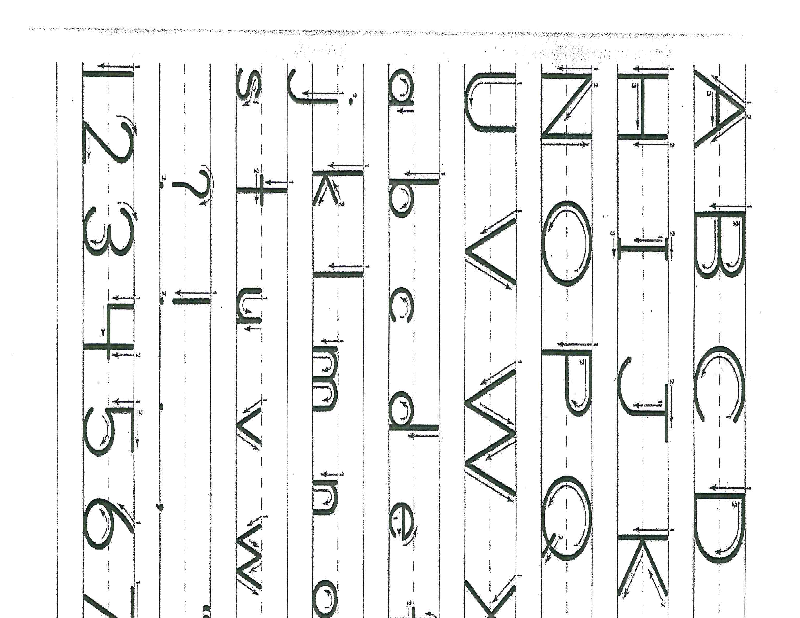 A B C D
H I J K
N O P Q
U V W X
a b c d e
j k l m n o
s t u v w
? ! . ,
1 2 3 4 5 6 7